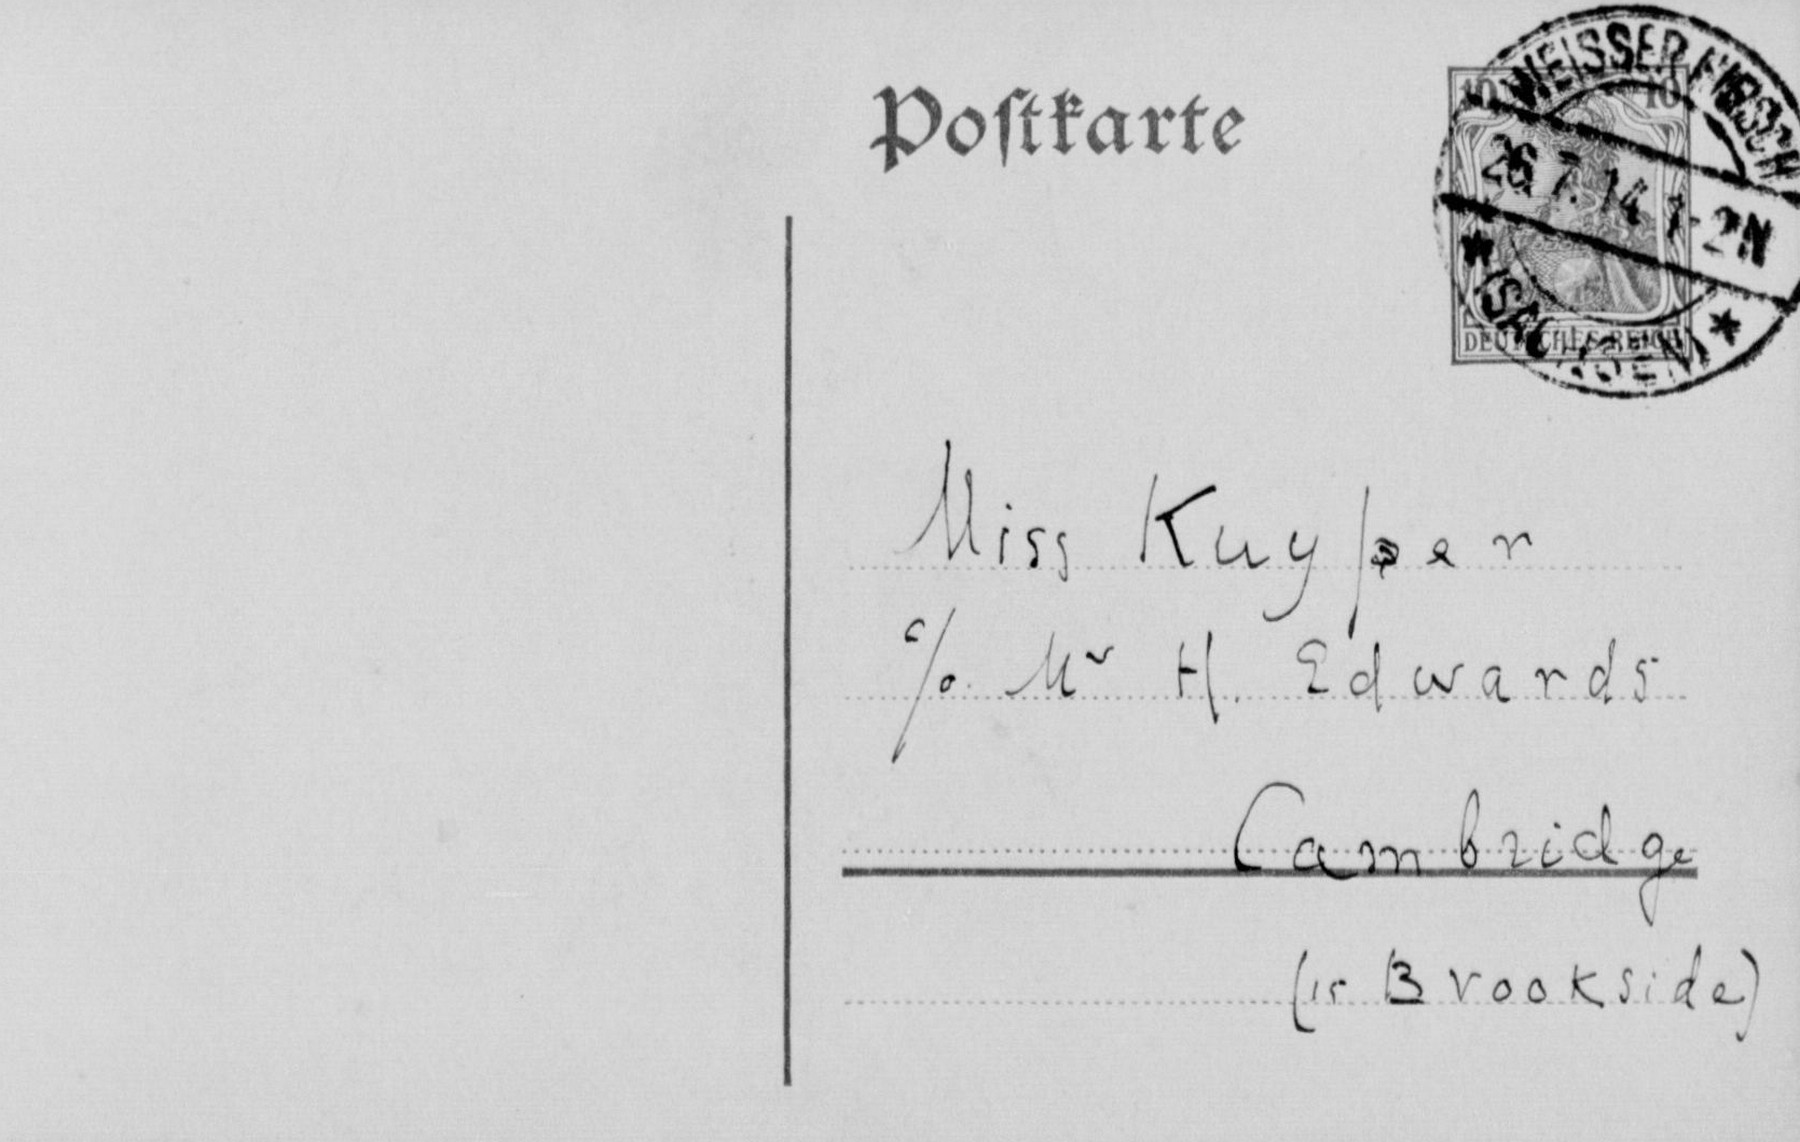 Postkarte
10 10
WEISSER HIRSCH
26.7.14 1-2N
* (SACHSEN) *
DEUTSCHES REICH
Miss Kuyper
c/o Mr H. Edwards
Cambridge
(15 Brookside)